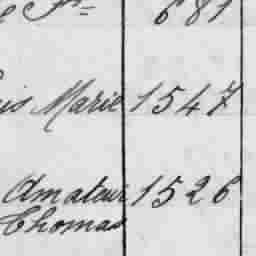 681
Marie 1547
Amateur 1526
Thomas